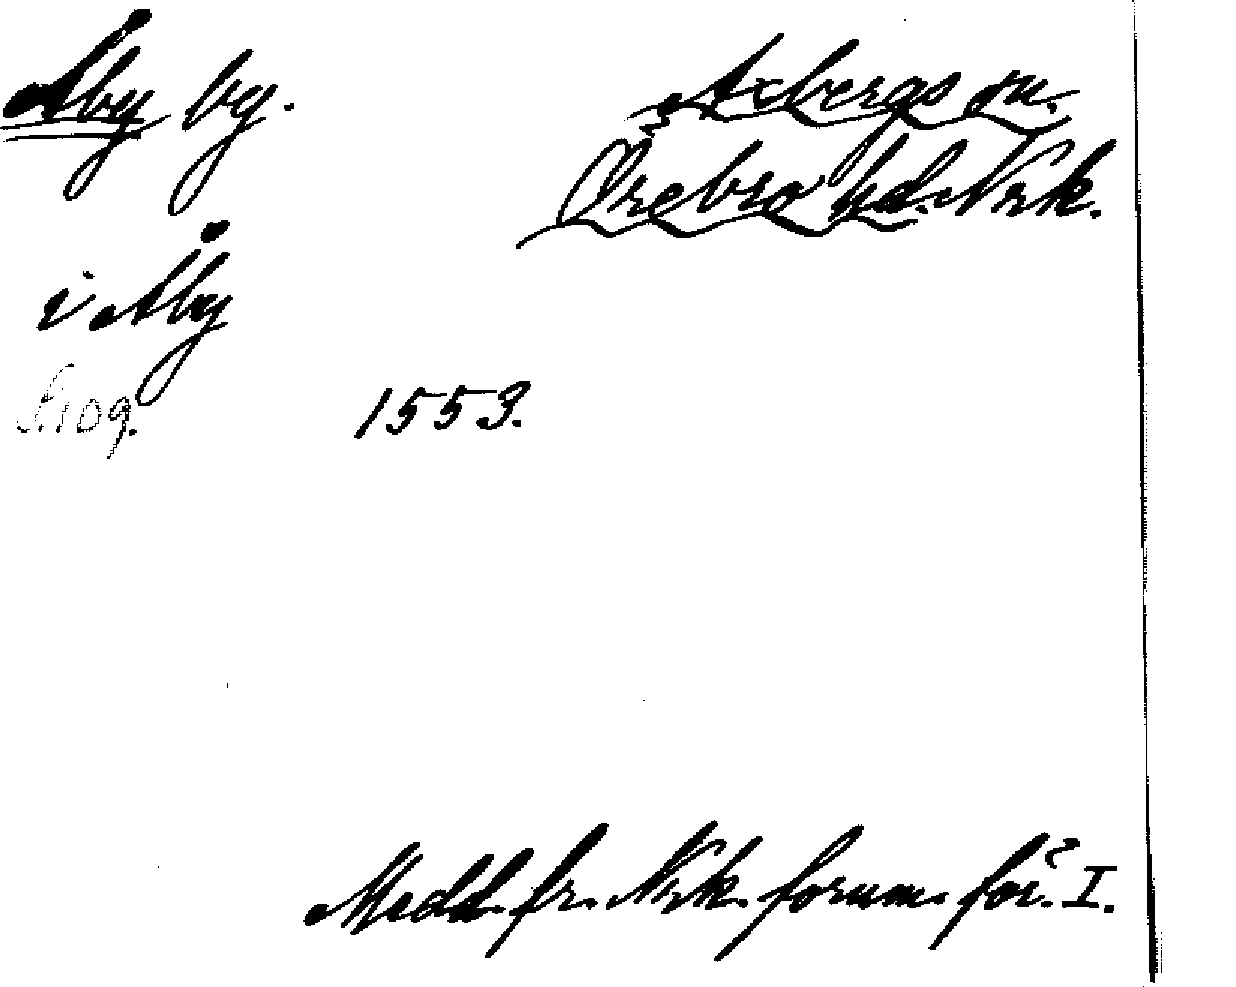 Åby by.
Axbergs sn.
Örebro hd. Nrk.
i Åby
S. 109.
1553.
Medd. fr. Nrk. fornm. för. I.